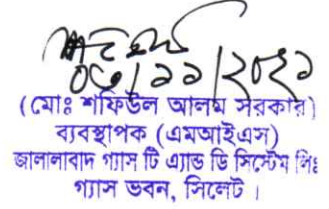 ০৩/১১/২০২১
(মোঃ শফিউল আলম সরকার)
ব্যবস্থাপক (এমআইএস)
জালালাবাদ গ্যাস টি এ্যান্ড ডি সিস্টেম লিঃ
গ্যাস ভবন, সিলেট ।